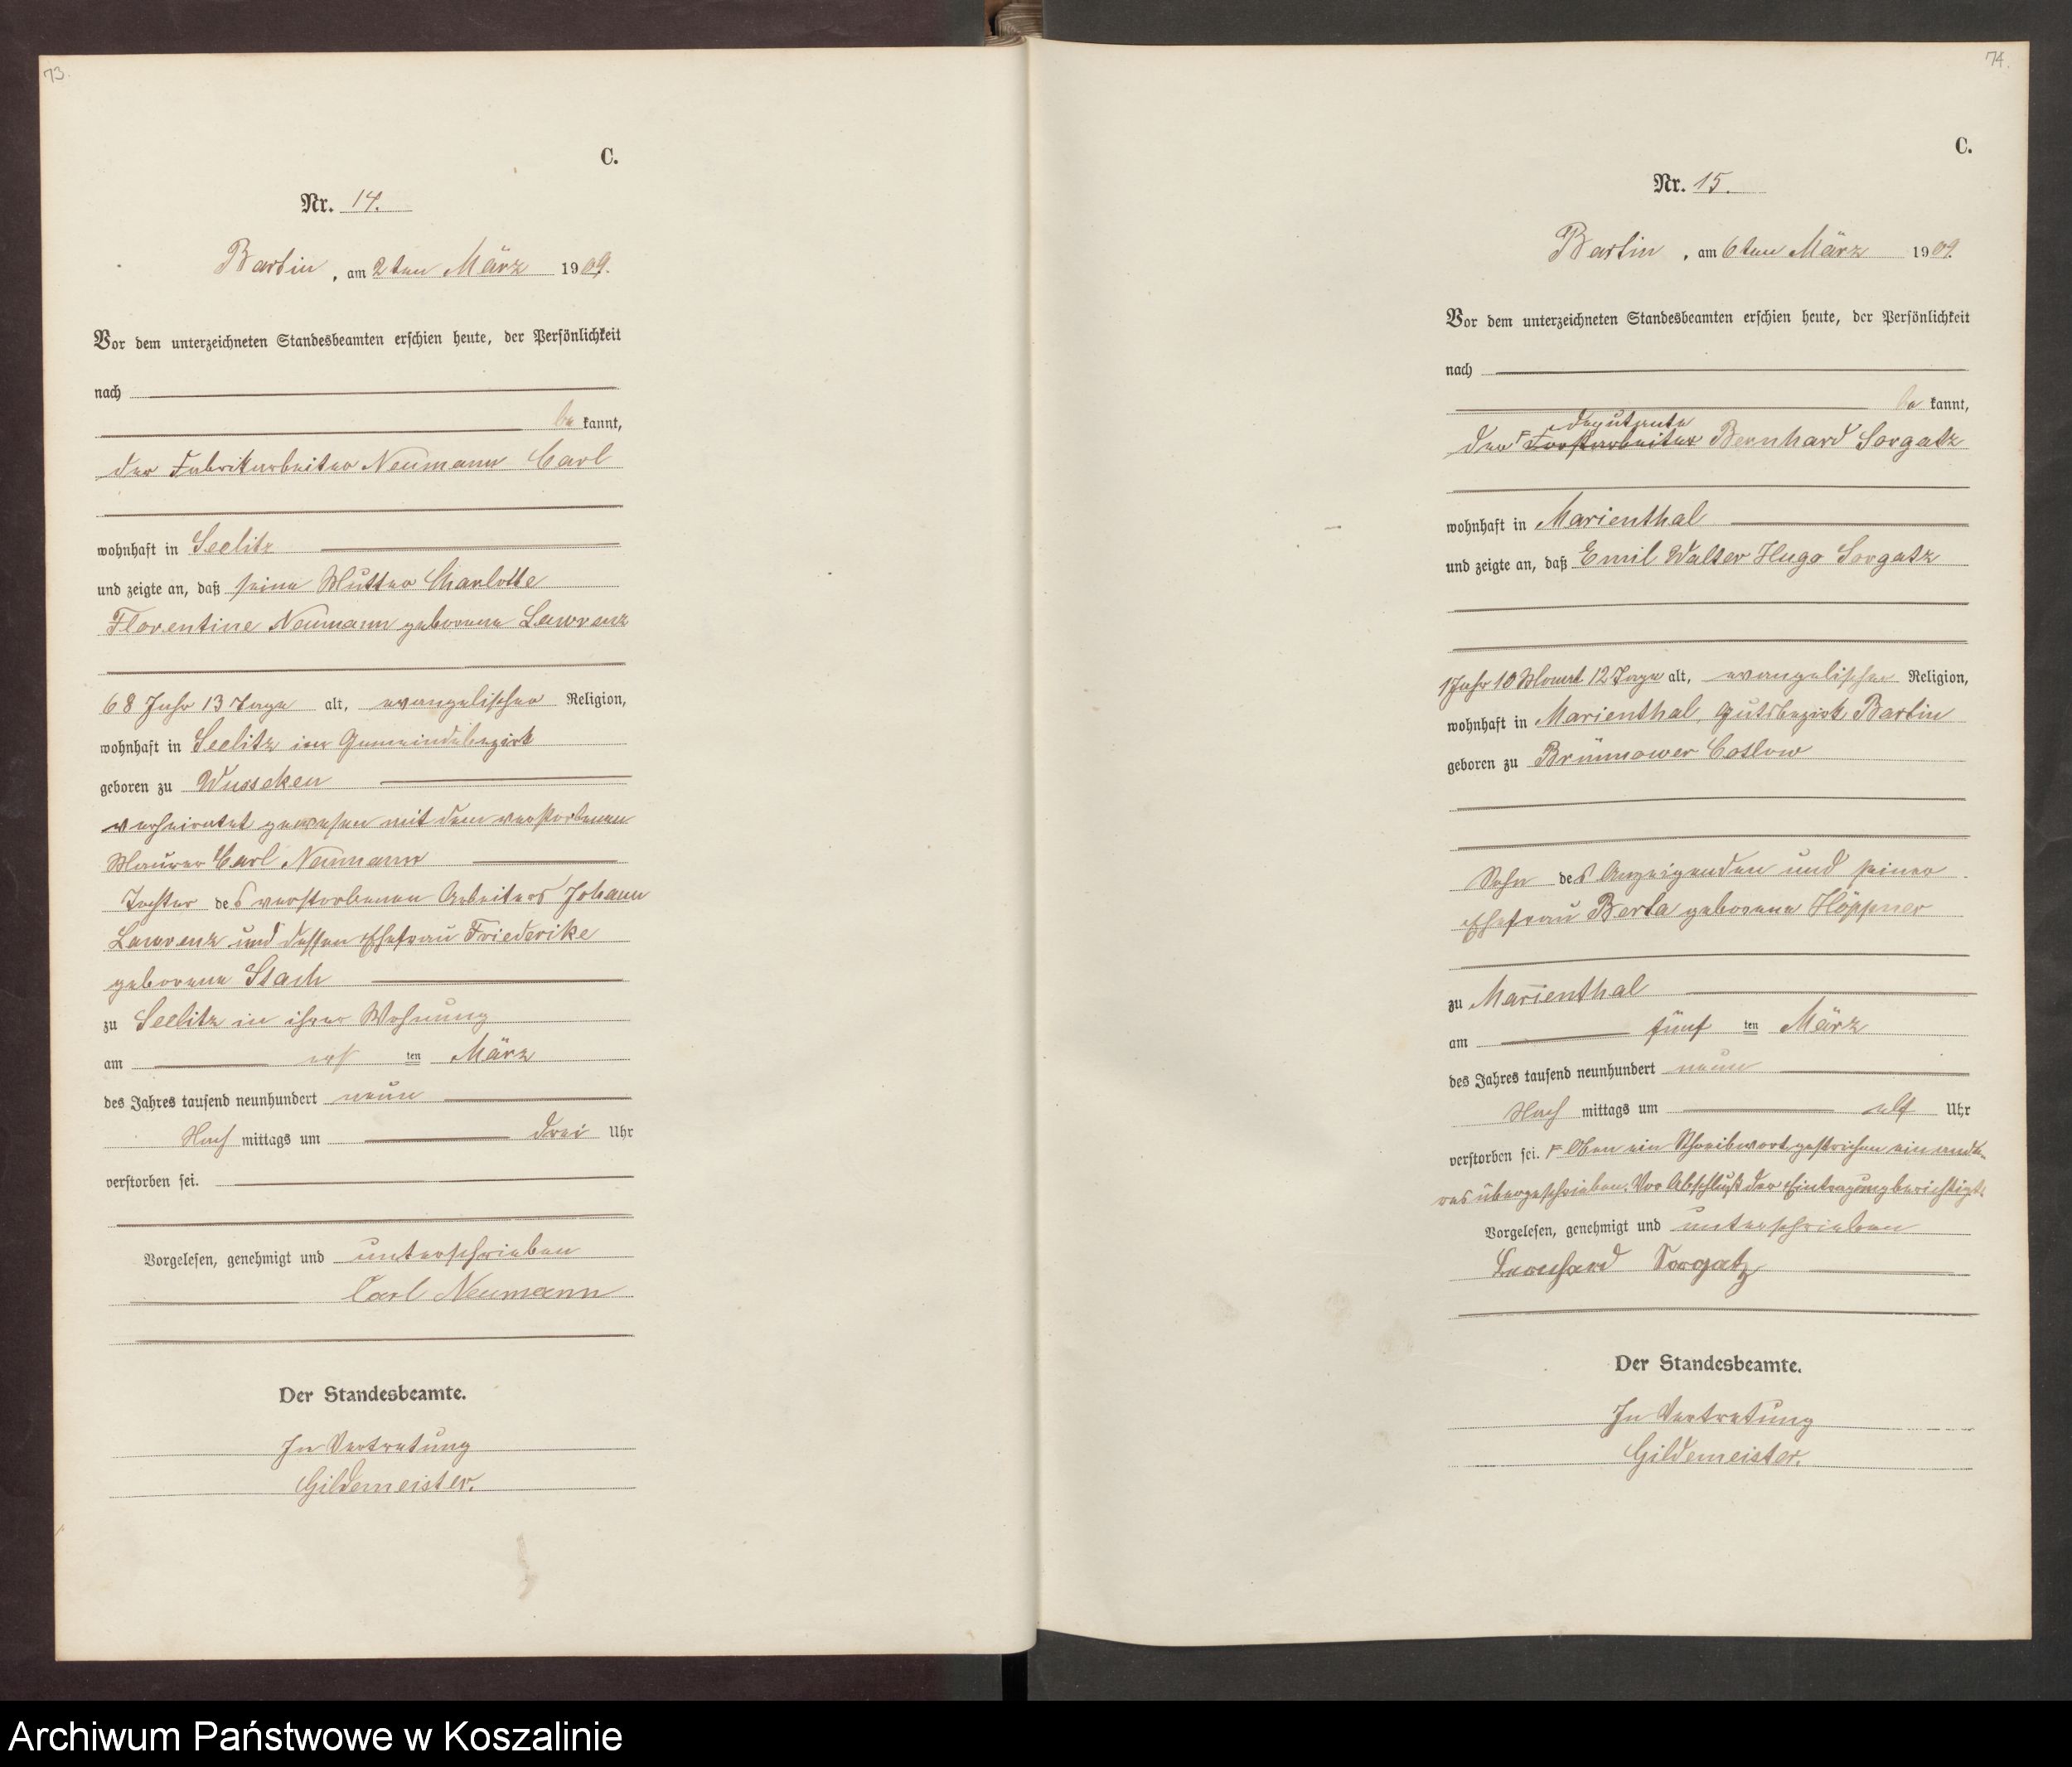 73.
C.
Nr. 14.
Bartin, am 2ten März 1909.
Vor dem unterzeichneten Standesbeamten erschien heute, der Persönlichkeit
nach
be kannt,
der Fabrikarbeiter Neumann Carl
wohnhaft in Seelitz
und zeigte an, daß seine Mutter Charlotte
Florentine Neumann geborene Lawrenz
68 Jahr 13 Tage alt, evangelischer Religion,
wohnhaft in Seelitz im Gemeindebezirk
geboren zu Wusseken
verheiratet gewesen mit dem verstorbenen
Maurer Carl Neumann
Tochter des verstorbenen Arbeiters Johann
Lawrenz und dessen Ehefrau Friederike
geborene Stach
zu Seelitz in ihrer Wohnung
am erst ten März
des Jahres tausend neunhundert neun
Nach mittags um drei Uhr
verstorben sei.
Vorgelesen, genehmigt und unterschrieben
Carl Neumann
Der Standesbeamte.
In Vertretung
Gildemeister.
74.
C.
Nr. 15.
Bartin, am 6ten März 1909.
Vor dem unterzeichneten Standesbeamten erschien heute, der Persönlichkeit
nach
be kannt,
Deputant
der Forstarbeiter Bernhard Sorgatz
wohnhaft in Marienthal
und zeigte an, daß Emil Walter Hugo Sorgatz
1 Jahr 10 Monat 12 Tage alt, evangelischer Religion,
wohnhaft in Marienthal, Gutsbezirk Bartin
geboren zu Brünnower Cotlow
Sohn des Anzeigenden und seiner
Ehefrau Berta geborene Höppner
zu Marienthal
am fünf ten März
des Jahres tausend neunhundert neun
Nach mittags um elf Uhr
verstorben sei. Oben ein Schreibwort gestrichen ein ande-
res übergeschrieben. Vor Abschluß der Eintragung berichtigt.
Vorgelesen, genehmigt und unterschrieben
Bernhard Sorgatz
Der Standesbeamte.
In Vertretung
Gildemeister.
Archiwum Państwowe w Koszalinie